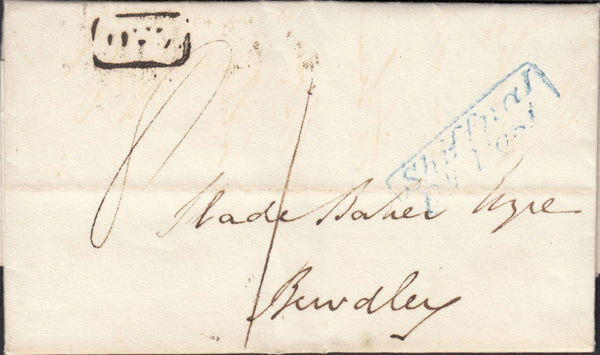 8
Shiffnal
Py Post
Slade Baker Esqre
Bewdley